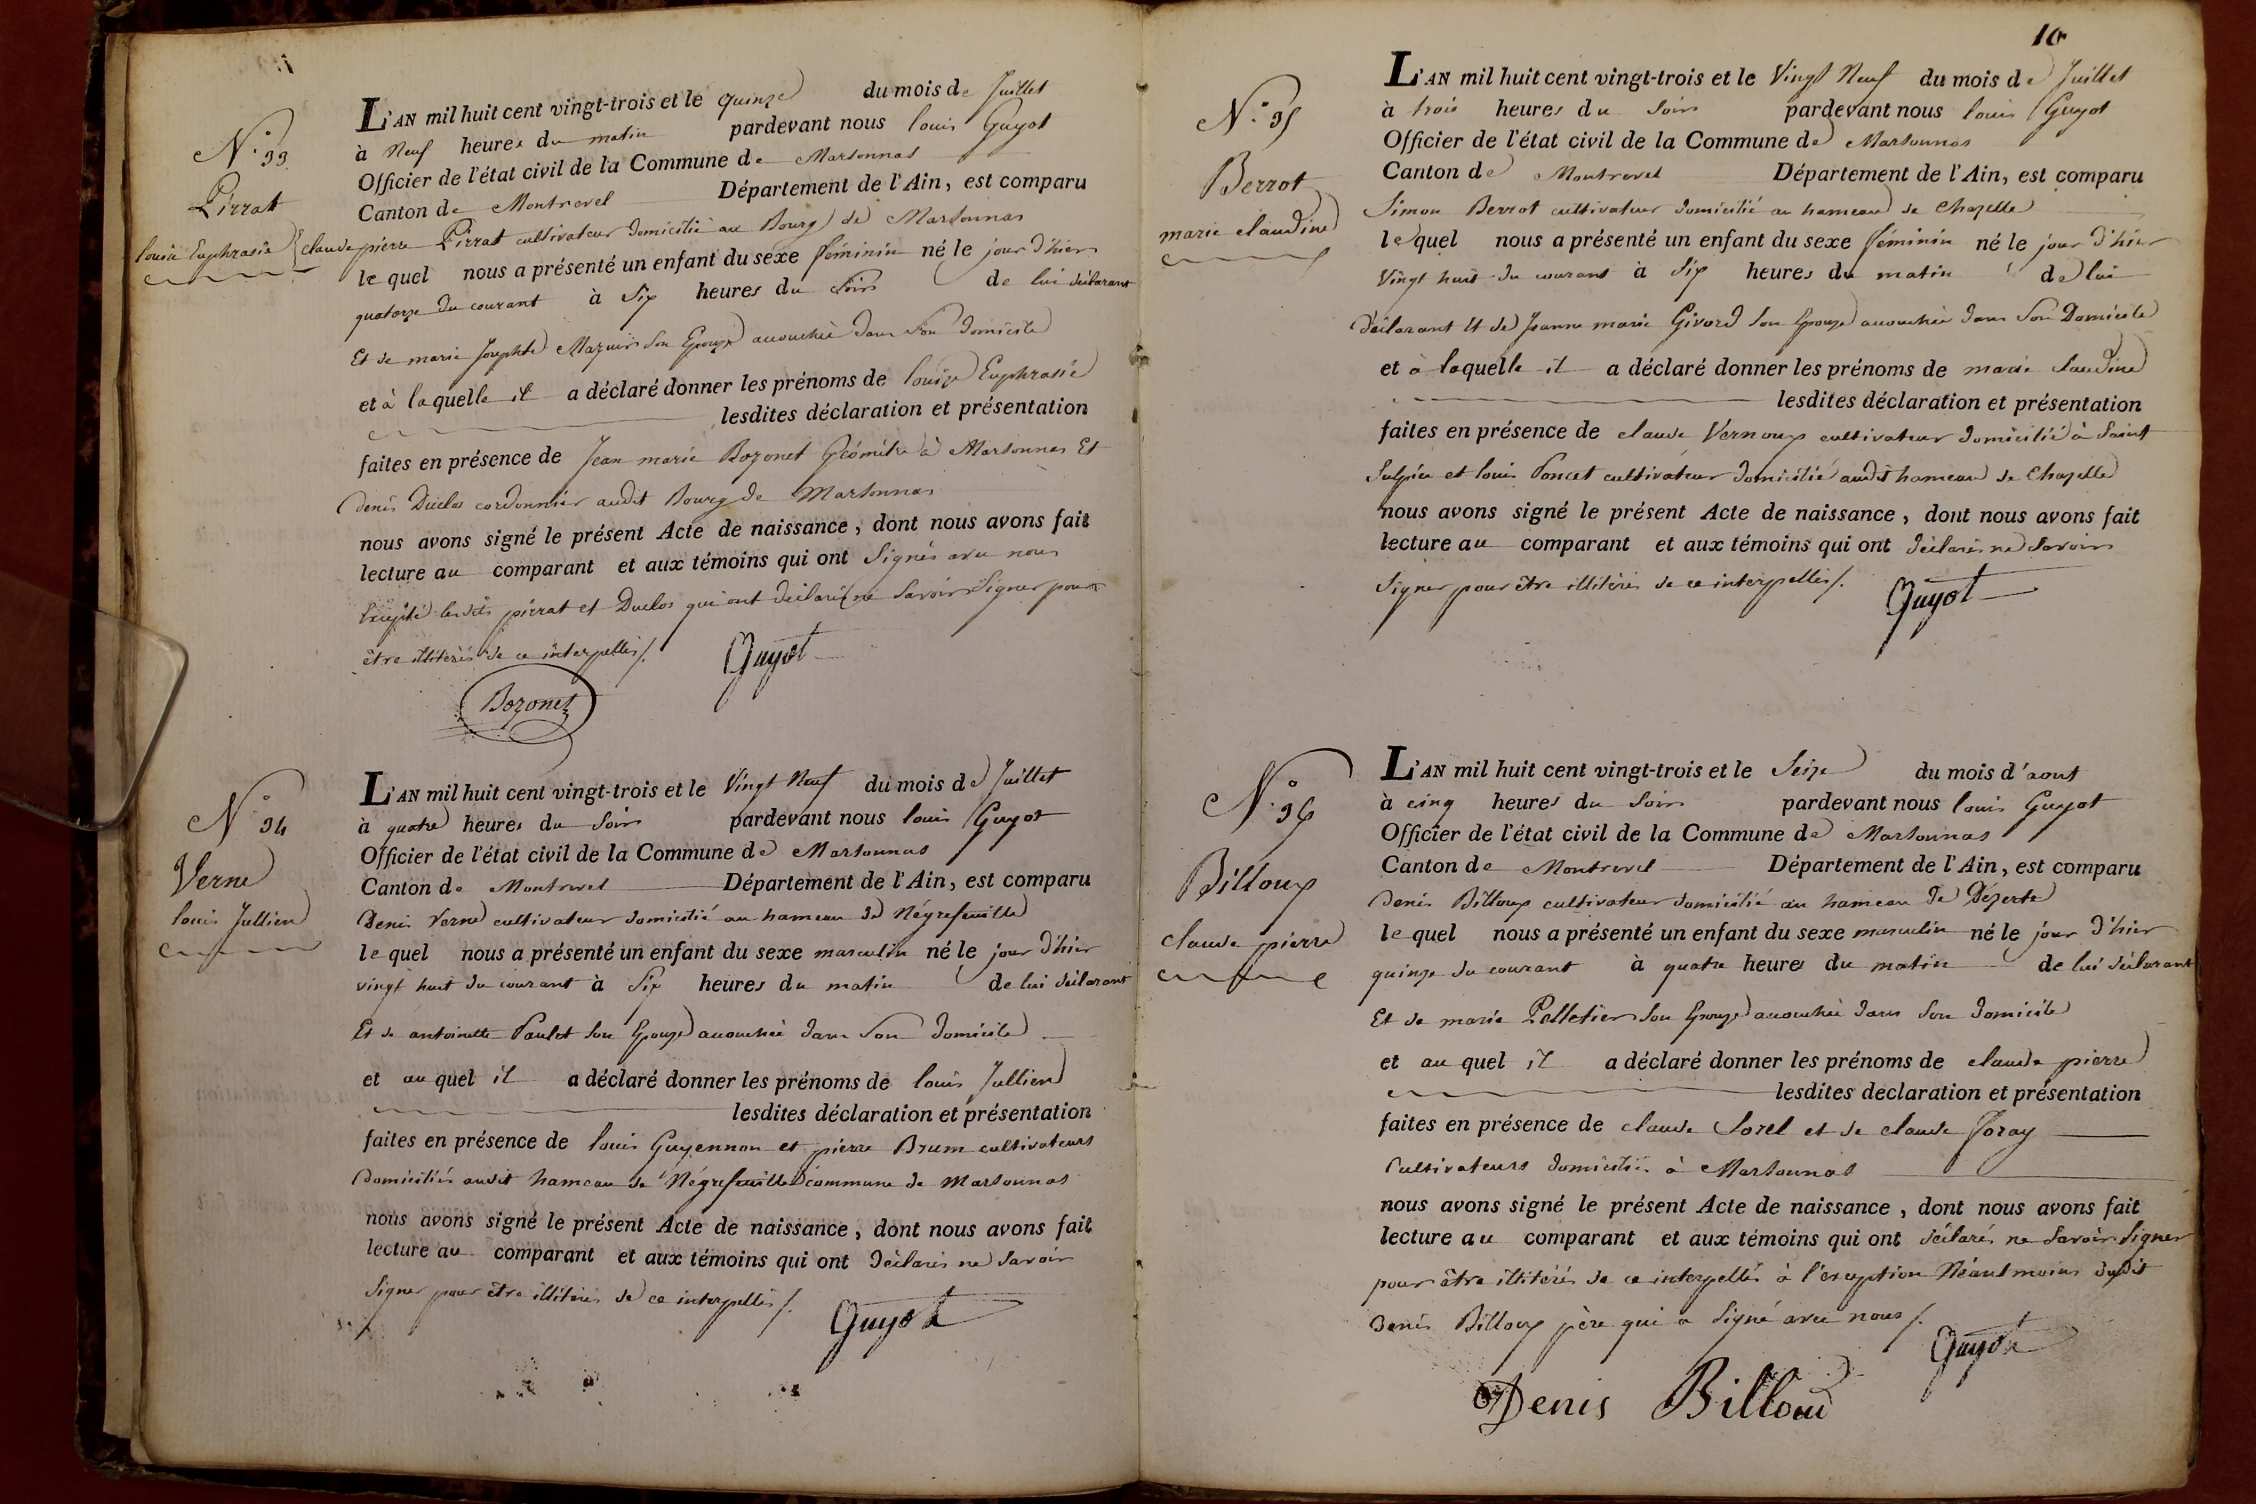 N.° 33
Pirrat
louise Euphrasie
L'AN mil huit cent vingt-trois et le quinze du mois de Juillet
à Neuf heures du matin pardevant nous louis Guyot
Officier de l'état civil de la Commune de Marsonnas
Canton de Montrevel Département de l'Ain, est comparu
claude pierre Pirrat cultivateur domicilié au Bourg de Marsonnas
le quel nous a présenté un enfant du sexe féminin né le jour d'hier
quatorze du courant à Six heures du Soir de lui déclarant
Et de marie Josephte Mazuir Son Epouze accouchée dans Son domicile
et à laquelle il a déclaré donner les prénoms de louize Euphrasie
lesdites déclaration et présentation
faites en présence de Jean marie Bozonet Géomètre à Marsonnas Et
denis Duclos cordonnier audit Bourg de Marsonnas
nous avons signé le présent Acte de naissance, dont nous avons fait
lecture au comparant et aux témoins qui ont Signés avec nous
Excepté lesdits pirrat et Duclos qui ont déclaré ne Savoir Signer pour
être illitérés de ce interpellés /.
Guyot
Bozonet
N° 34
Verne
louis Jullien
L'AN mil huit cent vingt-trois et le Vingt Neuf du mois de Juillet
à quatre heures du Soir pardevant nous louis Guyot
Officier de l'état civil de la Commune de Marsonnas
Canton de Montrevel Département de l'Ain, est comparu
Denis Verne cultivateur domicilié au hameau de Négrefeuille
le quel nous a présenté un enfant du sexe masculin né le jour d'hier
vingt huit du courant à Six heures du matin de lui déclarant
Et de antoinette Paulet Son Epouze accouchée dans Son domicile
et au quel il a déclaré donner les prénoms de louis Jullien
lesdites déclaration et présentation
faites en présence de louis Guyennon et pierre Brum cultivateurs
Domiciliés audit hameau de Négrefeuille commune de Marsonnas
nous avons signé le présent Acte de naissance, dont nous avons fait
lecture au comparant et aux témoins qui ont déclarés ne Savoir
Signer pour être illitérés de ce interpellés /.
Guyot
10
N.° 35
Berrot
marie claudine
L'AN mil huit cent vingt-trois et le Vingt Neuf du mois de Juillet
à trois heures du Soir pardevant nous louis Guyot
Officier de l'état civil de la Commune de Marsonnas
Canton de Montrevel Département de l'Ain, est comparu
Simon Berrot cultivateur domicilié au hameau de Chazelle
le quel nous a présenté un enfant du sexe féminin né le jour d'hier
Vingt huit du courant à Six heures du matin de lui
déclarant Et de Jeanne marie Givord Son Epouze accouchée dans Son Domicile
et à laquelle il a déclaré donner les prénoms de marie claudine
lesdites déclaration et présentation
faites en présence de claude Vernoux cultivateur domicilié à Saint
Sulpice et louis Poncet cultivateur domicilié audit hameau de Chazelle
nous avons signé le présent Acte de naissance, dont nous avons fait
lecture au comparant et aux témoins qui ont déclarés ne Savoir
Signer pour être illitérés de ce interpellés /.
Guyot
N.° 36
Billoux
claude pierre
L'AN mil huit cent vingt-trois et le Seize du mois d'aout
à cinq heures du Soir pardevant nous louis Guyot
Officier de l'état civil de la Commune de Marsonnas
Canton de Montrevel Département de l'Ain, est comparu
Denis Billoux cultivateur domicilié au hameau de Dézerte
le quel nous a présenté un enfant du sexe masculin né le jour d'hier
quinze du courant à quatre heures du matin de lui déclarant
Et de marie Pelletier Son Epouze accouchée dans Son domicile
et au quel il a déclaré donner les prénoms de claude pierre
lesdites declaration et présentation
faites en présence de claude Sorel et de claude Foray
cultivateurs domiciliés à Marsonnas
nous avons signé le présent Acte de naissance, dont nous avons fait
lecture au comparant et aux témoins qui ont déclarés ne Savoir Signer
pour être illitérés de ce interpellés à l'exception Néantmoins dudit
Denis Billoux père qui a Signé avec nous /.
Guyot
Denis Billoud